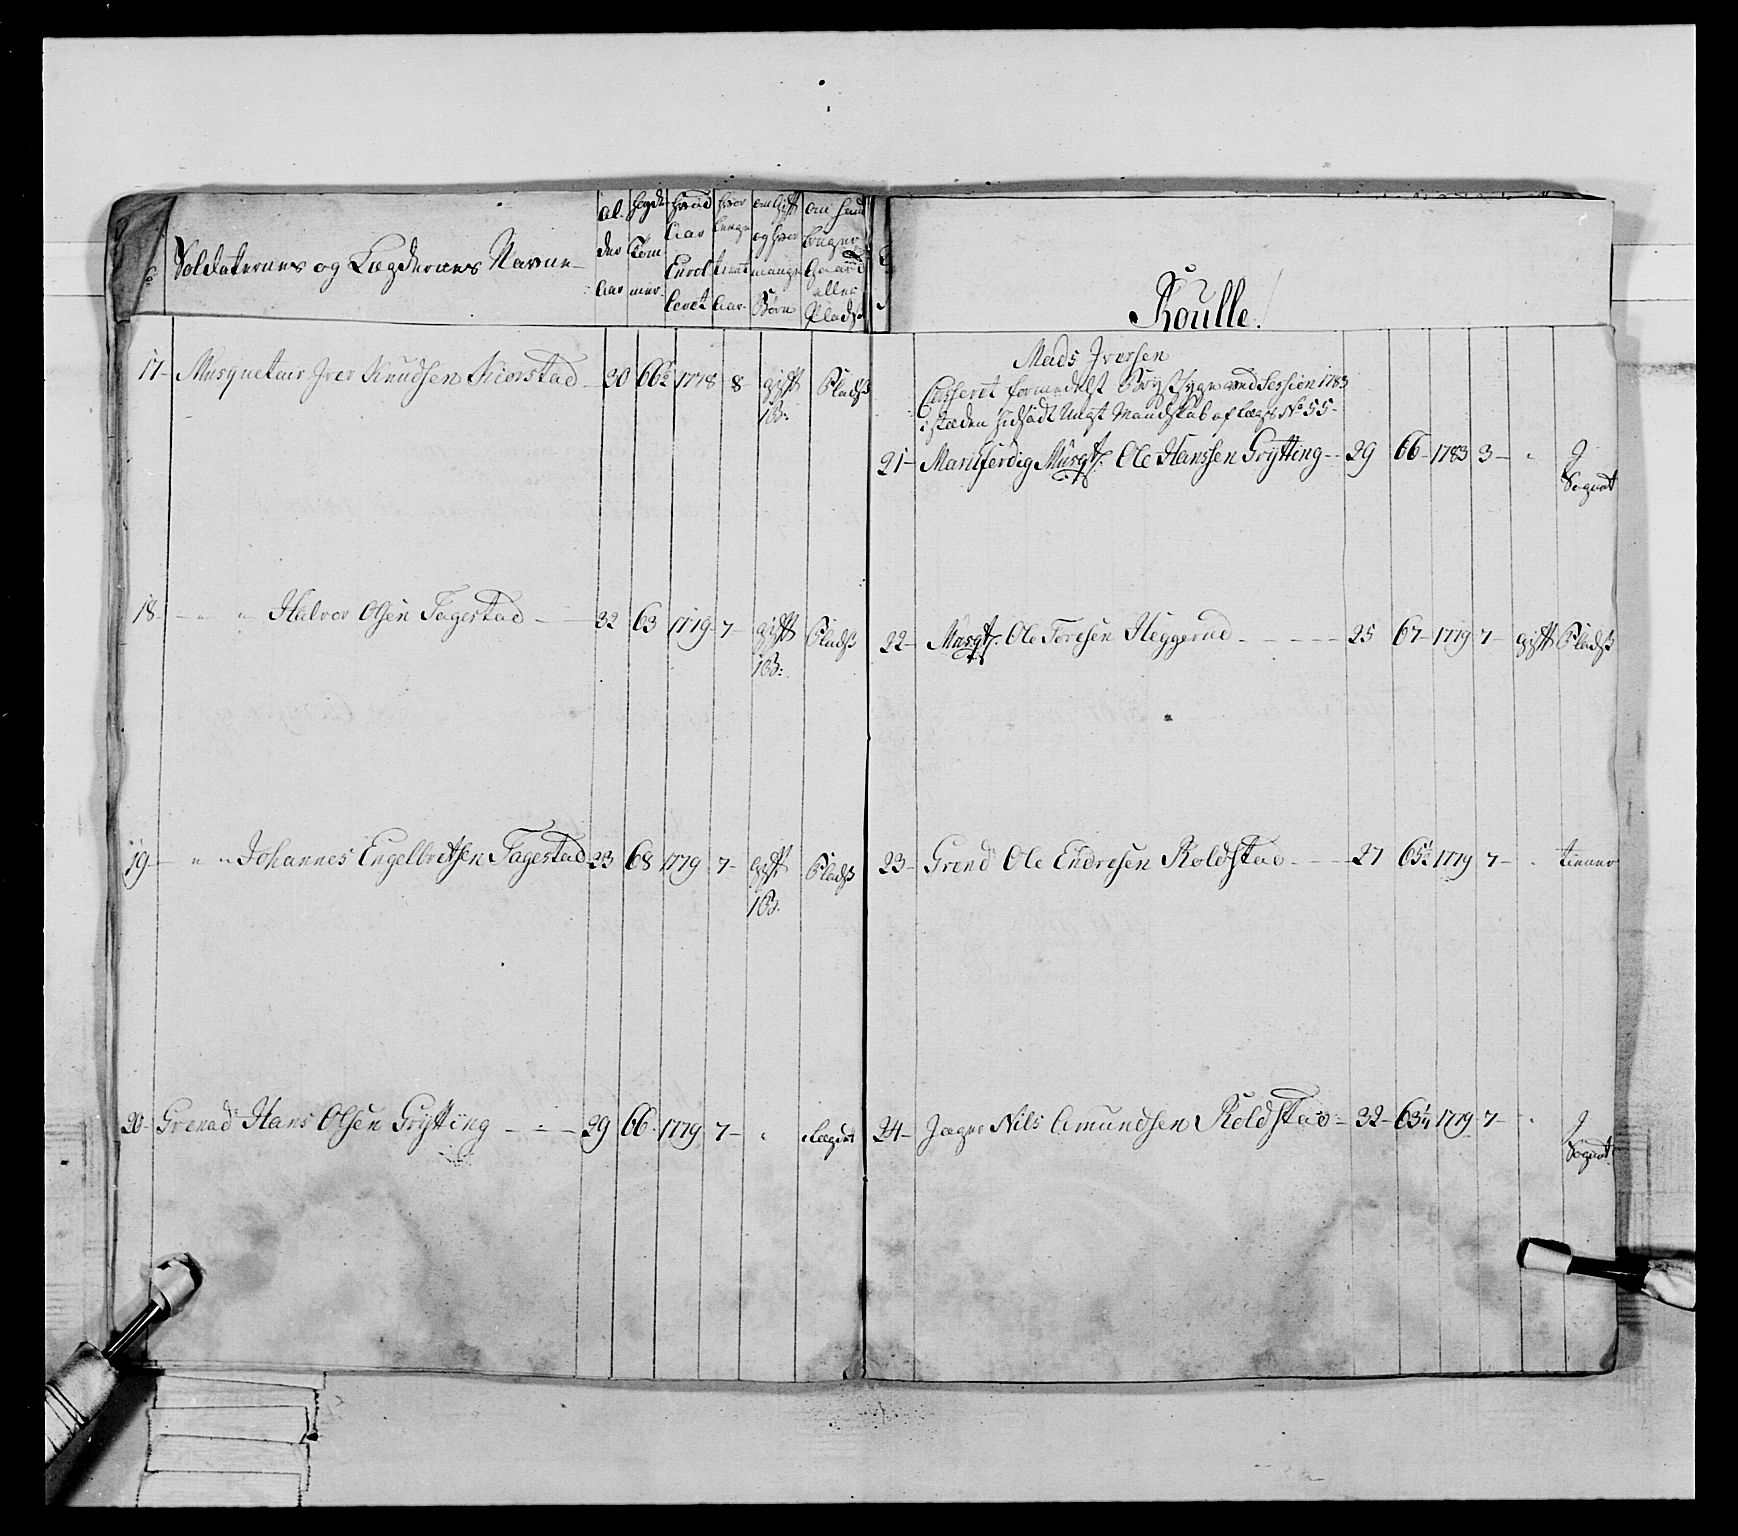 Soldaternes og Lægdernes Navne
Al-
der
Aar
Høyde
Tom-
mer
hvad
Aar
Enrol-
leret
hvor
længe
tient
Aar
om Gift
og hvor
mange
Børn
om hand
bruger
Gaard
eller
Plads
17- Musquetair Iver Knudsen Kiorstad 30 66½ 1778 8- gift Plads
1 B:
18- " " Halvor Olsen Fagestad 32 63 1779 7- gift Plads
1 B:
19- " " Johannes Engelbretsen Fagestad 23 68 1779 7- gift Plads
1 B.
20- Grenad Hans Olsen Grytting 29 66 1779 7- " Lægdet
Roulle.
Mads Iversen
Casseret formedelst Brystsyge ved Session 1783
i stæden Udsadt Ungt Mandskab af Lægd No 55-
21- Marschferdig Musqt. Ole Hanssen Grytting 29 66 1783 3- " I
Sognet
22- Musqt. Ole Toresen Heggerud 25 67 1779 7- gift Plads
23- Grend Ole Endresen Koldstad 27 65½ 1779 7- " tienner
24- Jæger Nils Amundsen Koldstad 32 63¼ 1779 7- " I
Sognet